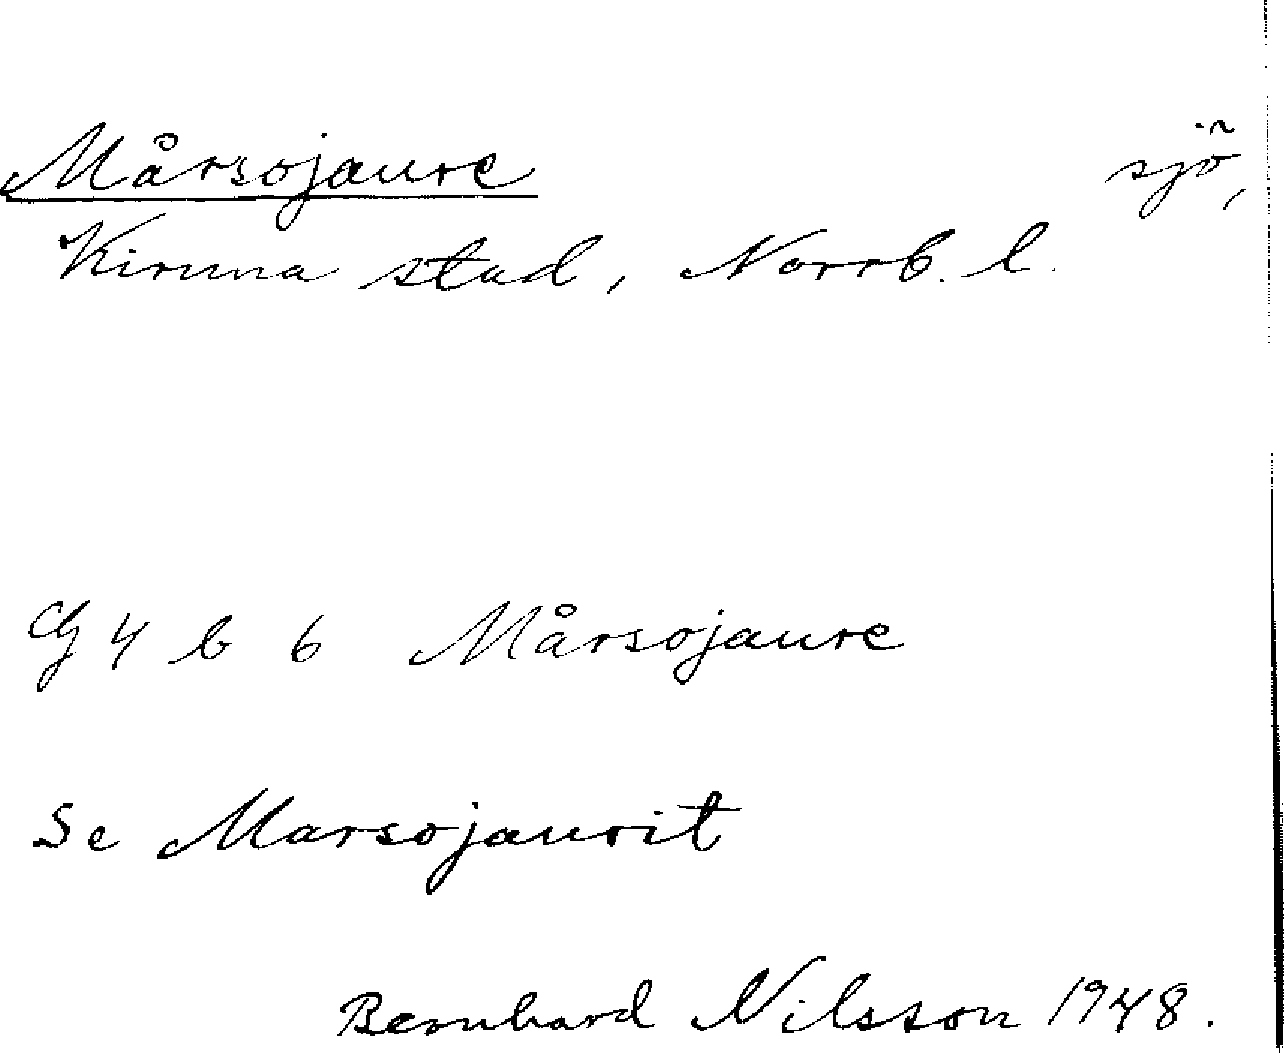 Mårsojaure sjö,
Kiruna stad, Norrb. l.
Gy 4 b 6 Mårsojaure
Se Marsojaurit
Bernhard Nilsson 1948.